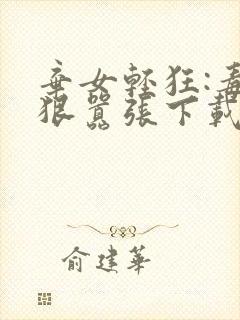 棄女輕狂:毒
狠囂張下載
俞建華